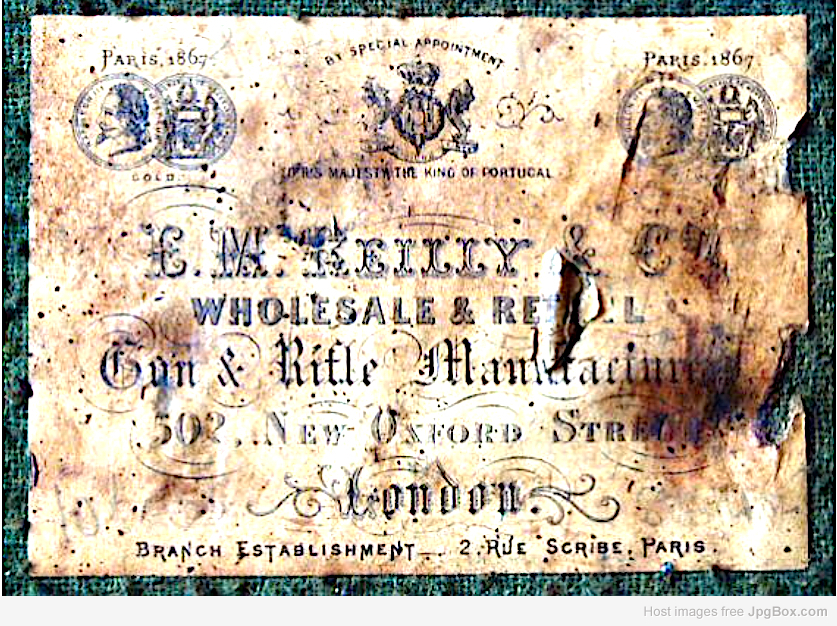 PARIS. 1867. BY SPECIAL APPOINTMENT PARIS. 1867.
GOLD. MAJESTY THE KING OF PORTUGAL
E. M. REILLY & Co.
WHOLESALE & RETAIL
Gun & Rifle Manufacturers
502, NEW OXFORD STREET
London.
BRANCH ESTABLISHMENT 2, RUE SCRIBE, PARIS.
Host images free JpgBox.com